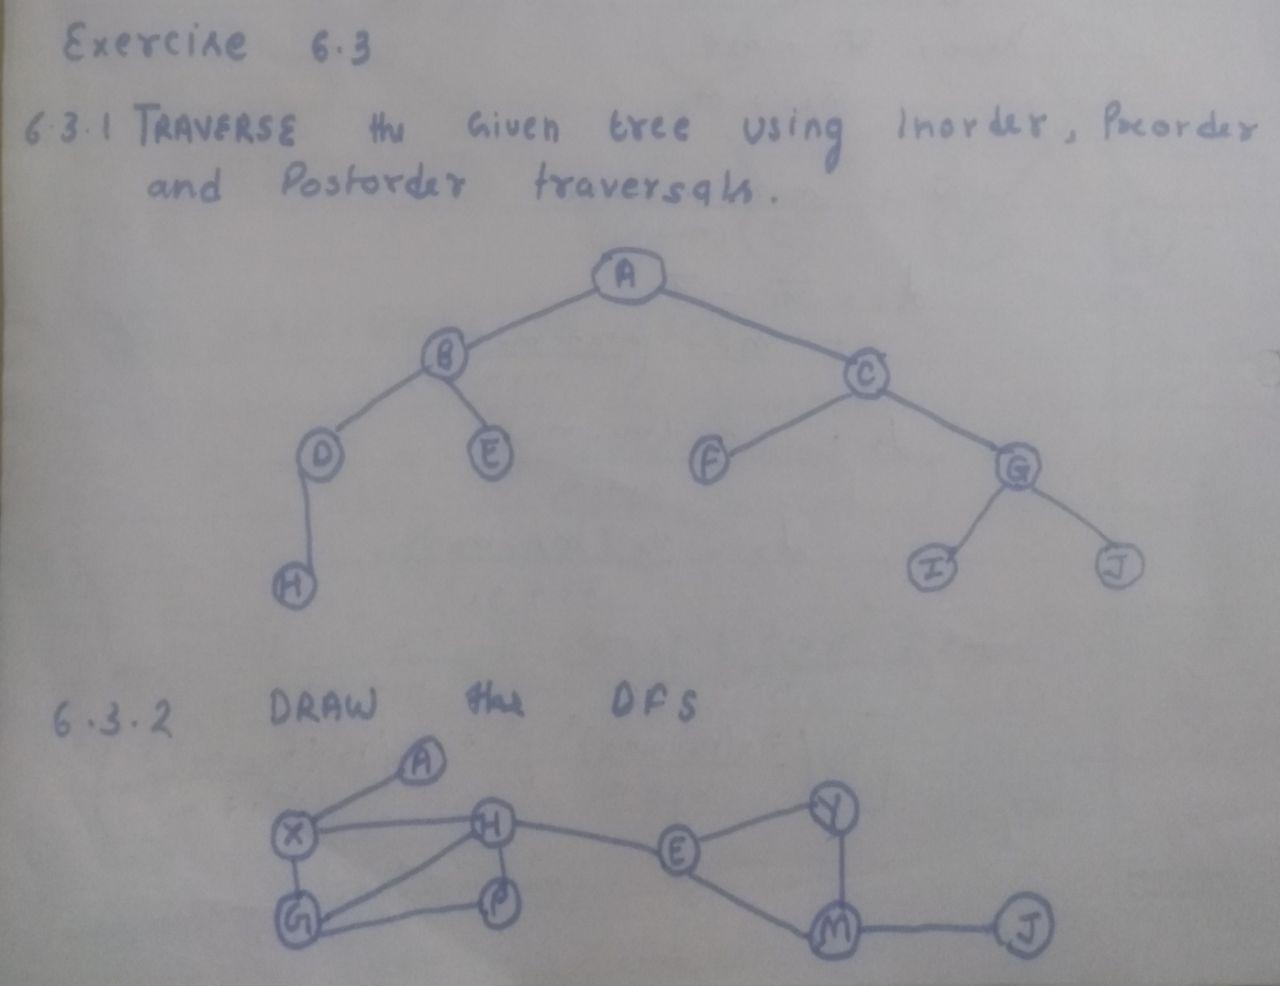 Exercise 6.3
6.3.1 TRAVERSE the Given tree using Inorder, Preorder
and Postorder traversals.
A
B
C
D
E
F
G
H
I
J
6.3.2 DRAW the DFS
A
X
H
E
Y
G
P
M
J